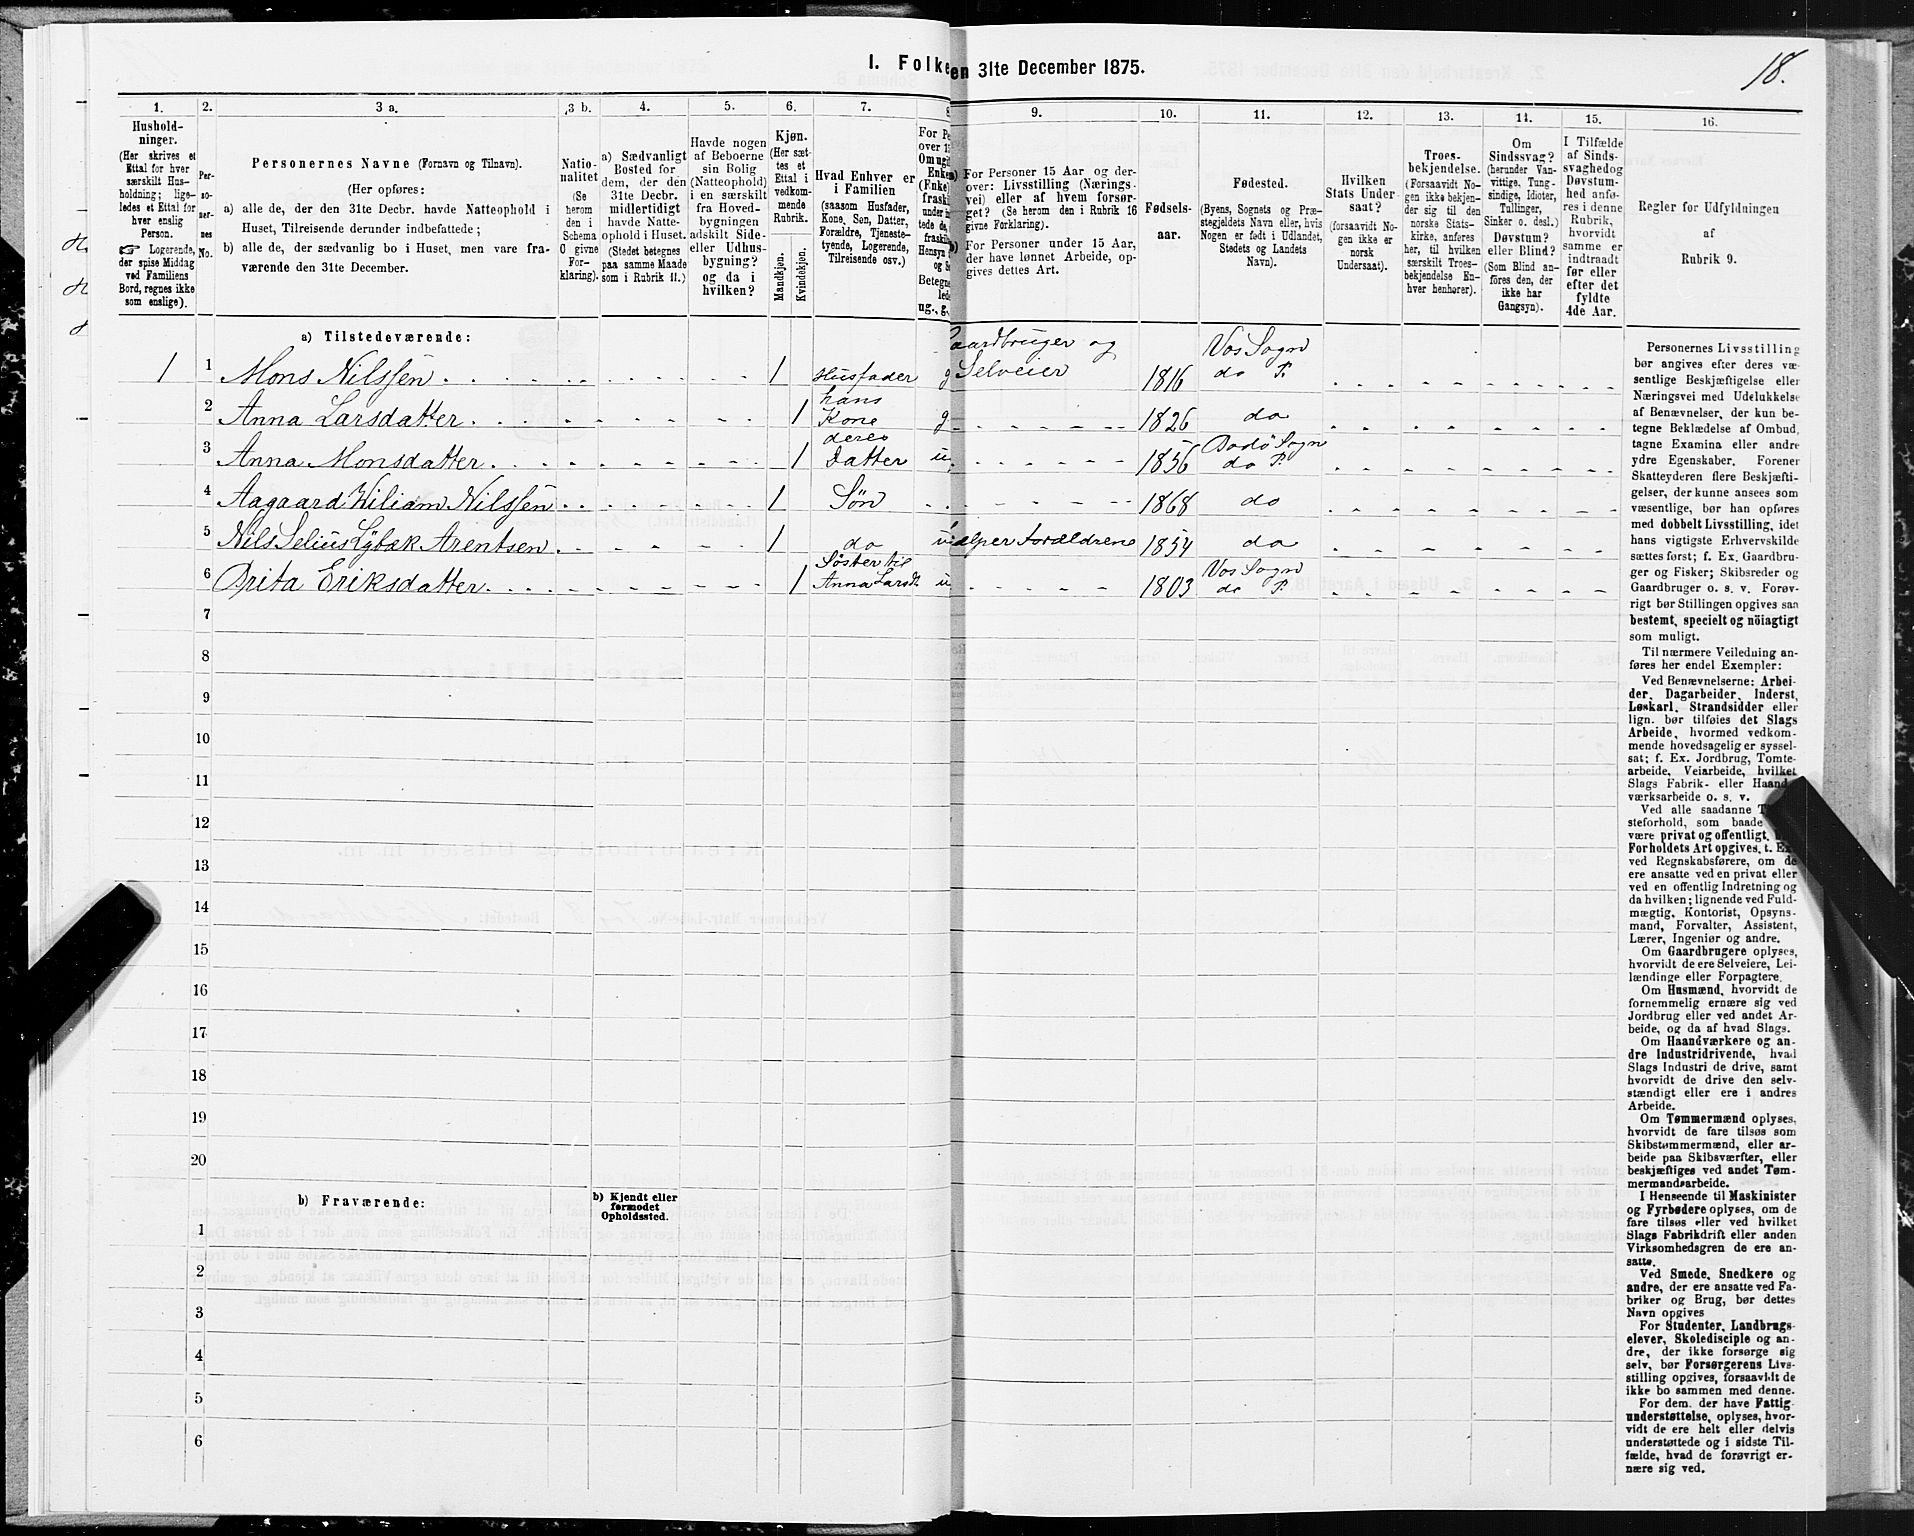 18.
I. Folke
en 31te December 1875.
1.
2.
3 a.
3 b.
4.
5.
6.
7.
8
9.
10.
11.
12.
13.
14.
15.
16.
Hushold-
ninger.
(Her skrives et
Ettal for hver
særskilt Hus-
holdning; lige-
ledes et Ettal for
hver enslig
Person.
☞ Logerende,
der spise Middag
ved Familiens
Bord, regnes ikke
som enslige).
Per-
so-
ner-
nes
No.
Personernes Navne (Fornavn og Tilnavn).
(Her opføres:
a) alle de, der den 31te Decbr. havde Natteophold i
Huset, Tilreisende derunder indbefattede;
b) alle de, der sædvanlig bo i Huset, men vare fra-
værende den 31te December.
Natio-
nalitet
(Se
herom
den i
Schema
O givne
For-
klaring).
a) Sædvanligt
Bosted for
dem, der den
31te Decbr.
midlertidigt
havde Natte-
ophold i Huset.
(Stedet betegnes
paa samme Maade
som i Rubrik 11.)
Havde nogen
af Beboerne
sin Bolig
(Natteophold)
i en særskilt
fra Hoved-
bygningen
adskilt Side-
eller Udhus-
bygning?
og da i
hvilken?
Kjøn.
(Her sæt-
tes et
Ettal i
vedkom-
mende
Rubrik.
Mandkjøn.
Kvindekjøn.
Hvad Enhver er
i Familien
(saasom Husfader,
Kone, Søn, Datter,
Forældre, Tjeneste-
tyende, Logerende,
Tilreisende osv.)
For Pe
over 1
Om ugi
Enken
(Fnke)
fraski
under in
tede de,
fraskil
Hensyn
og S
Betegn
lede
ug., g.,
a) For Personer 15 Aar og der-
over: Livsstilling (Nærings-
vei) eller af hvem forsør-
get? (Se herom den i Rubrik 16
givne Forklaring).
b) For Personer under 15 Aar,
der have lønnet Arbeide, op-
gives dettes Art.
Fødsels-
aar.
Fødested.
(Byens, Sognets og Præ-
stegjeldets Navn eller, hvis
Nogen er født i Udlandet,
Stedets og Landets
Navn).
Hvilken
Stats Under-
saat?
(forsaavidt No-
gen ikke er
norsk
Undersaat).
Troes-
bekjendelse.
(Forsaavidt No-
gen ikke bekjen-
der sig til den
norske Stats-
kirke, anføres
her, til hvilken
særskilt Troes-
bekjendelse En-
hver henhører).
Om
Sindssvag?
(herunder Van-
vittige, Tung-
sindige, Idioter,
Tullinger,
Sinker o. desl.)
Døvstum?
eller Blind?
(Som Blind an-
føres den, der
ikke har
Gangsyn).
I Tilfælde
af Sinds-
svaghedog
Døvstum-
hed anfø-
res i denne
Rubrik,
hvorvidt
samme er
indtraadt
før eller
efter det
fyldte
4de Aar.
Regler for Udfyldningen
af
Rubrik 9.
a) Tilstedeværende:
1 1 Mons Nilssen 1 Husfader g Gaardbruger og Selveier 1816 Vos Sogn do P.
2 Anna Larsdatter 1 hans Kone g 1826 do
3 Anna Monsdatter 1 deres Datter u 1856 Bodø Sogn do P.
4 Aagaard Wiliam Nilssen 1 Søn 1868 do
5 Nils Selius Lybæk Arentsen 1 do u hjælper Forældrene 1854 do
6 Brita Eriksdatter 1 Søster til Anna Larsdt. u 1803 Vos Sogn do P.
7
8
9
10
11
12
13
14
15
16
17
18
19
20
b) Fraværende:
b) Kjendt eller
formodet
Opholdssted.
1
2
3
4
5
6
Personernes Livsstilling
bør angives efter deres væ-
sentlige Beskjæftigelse eller
Næringsvei med Udelukkelse
af Benævnelser, der kun be-
tegne Beklædelse af Ombud,
tagne Examina eller andre
ydre Egenskaber. Forener
Skatteyderen flere Beskjæfti-
gelser, der kunne ansees som
væsentlige, bør han opføres
med dobbelt Livsstilling, idet
hans vigtigste Erhvervskilde
sættes først; f. Ex. Gaardbru-
ger og Fisker; Skibsreder og
Gaardbruger o. s. v. Forøv-
rigt bør Stillingen opgives saa
bestemt, specielt og nöiagtigt
som muligt.
Til nærmere Veiledning an-
føres her endel Exempler:
Ved Benævnelserne: Arbei-
der, Dagarbeider, Inderst,
Løskarl, Strandsidder eller
lign. bør tilføies det Slags
Arbeide, hvormed vedkom-
mende hovedsagelig er syssel-
sat; f. Ex. Jordbrug, Tomte-
arbeide, Veiarbeide, hvilket
Slags Fabrik- eller Haand-
værksarbeide o. s. v.
Ved alle saadanne
steforhold, som baade
være privat og offentligt,
Forholdets Art opgives, t. Ex.
ved Regnskabsførere, om de
ere ansatte ved en privat eller
ved en offentlig Indretning og
da hvilken; lignende ved Fuld-
mægtig, Kontorist, Opsyns-
mand, Forvalter, Assistent,
Lærer, Ingeniør og andre.
Om Gaardbrugere oplyses,
hvorvidt de ere Selveiere, Lei-
lændinge eller Forpagtere.
Om Husmænd, hvorvidt de
fornemmelig ernære sig ved
Jordbrug eller ved andet Ar-
beide, og da af hvad Slags.
Om Haandværkere og an-
dre Industridrivende, hvad
Slags Industri de drive, samt
hvorvidt de drive den selv-
stændigt eller ere i andres
Arbeide.
Om Tømmermænd oplyses,
hvorvidt de fare tilsøs som
Skibstømmermænd, eller ar-
beide paa Skibsværfter, eller
beskjæftiges ved andet Tøm-
mermandsarbeide.
I Henseende til Maskinister
og Fyrbødere oplyses, om de
fare tilsøs eller ved hvilket
Slags Fabrikdrift eller anden
Virksomhedsgren de ere an-
satte.
Ved Smede, Snedkere og
andre, der ere ansatte ved Fa-
briker og Brug, bør dettes
Navn opgives
For Studenter, Landbrugs-
elever, Skoledisciple og an-
dre, der ikke forsørge sig
selv, bør Forsørgerens Livs-
stilling opgives, forsaavidt de
ikke bo sammen med denne.
For dem, der have Fattig-
understøttelse, oplyses, hvor-
vidt de ere helt eller delvis
understøttede og i sidste Til-
fælde, hvad de forøvrigt er-
nære sig ved.